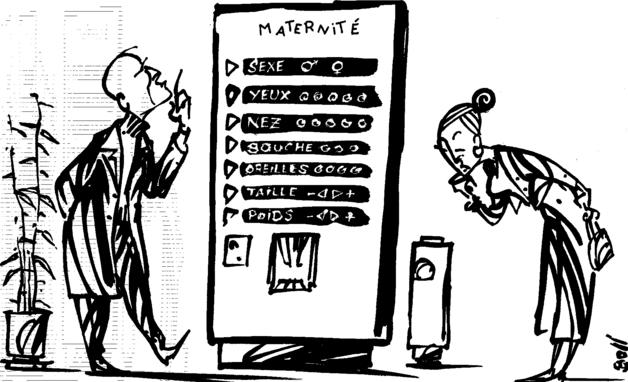 MATERNITÉ
SEXE ♂ ♀
YEUX
NEZ
BOUCHE
OREILLES
TAILLE - ◁ ▷ +
POIDS - ◁ ▷ +